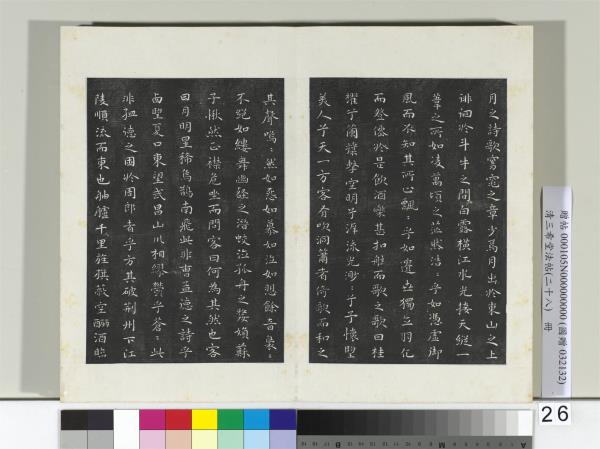 月之詩歌窈窕之章少焉月出於東山之上
徘徊於斗牛之間白露橫江水光接天縱一
葦之所如凌萬頃之茫然浩〻乎如馮虛御
風而不知其所止飄〻乎如遺世獨立羽化
而登僊於是飲酒樂甚扣舷而歌之歌曰桂
櫂兮蘭槳擊空明兮泝流光渺〻兮予懷望
美人兮天一方客有吹洞簫者倚歌而和之
其聲嗚〻然如怨如慕如泣如愬餘音裊〻
不絕如縷舞幽壑之潛蛟泣孤舟之嫠婦蘇
子愀然正襟危坐而問客曰何為其然也客
曰月明星稀烏鵲南飛此非曹孟德之詩乎
西望夏口東望武昌山川相繆鬱乎蒼〻此
非孟德之困於周郎者乎方其破荊州下江
陵順流而東也舳艫千里旌旗蔽空釃酒臨
贈帖 000105N000000000 (國贈 032132)
清三希堂法帖(二十八) 冊
26